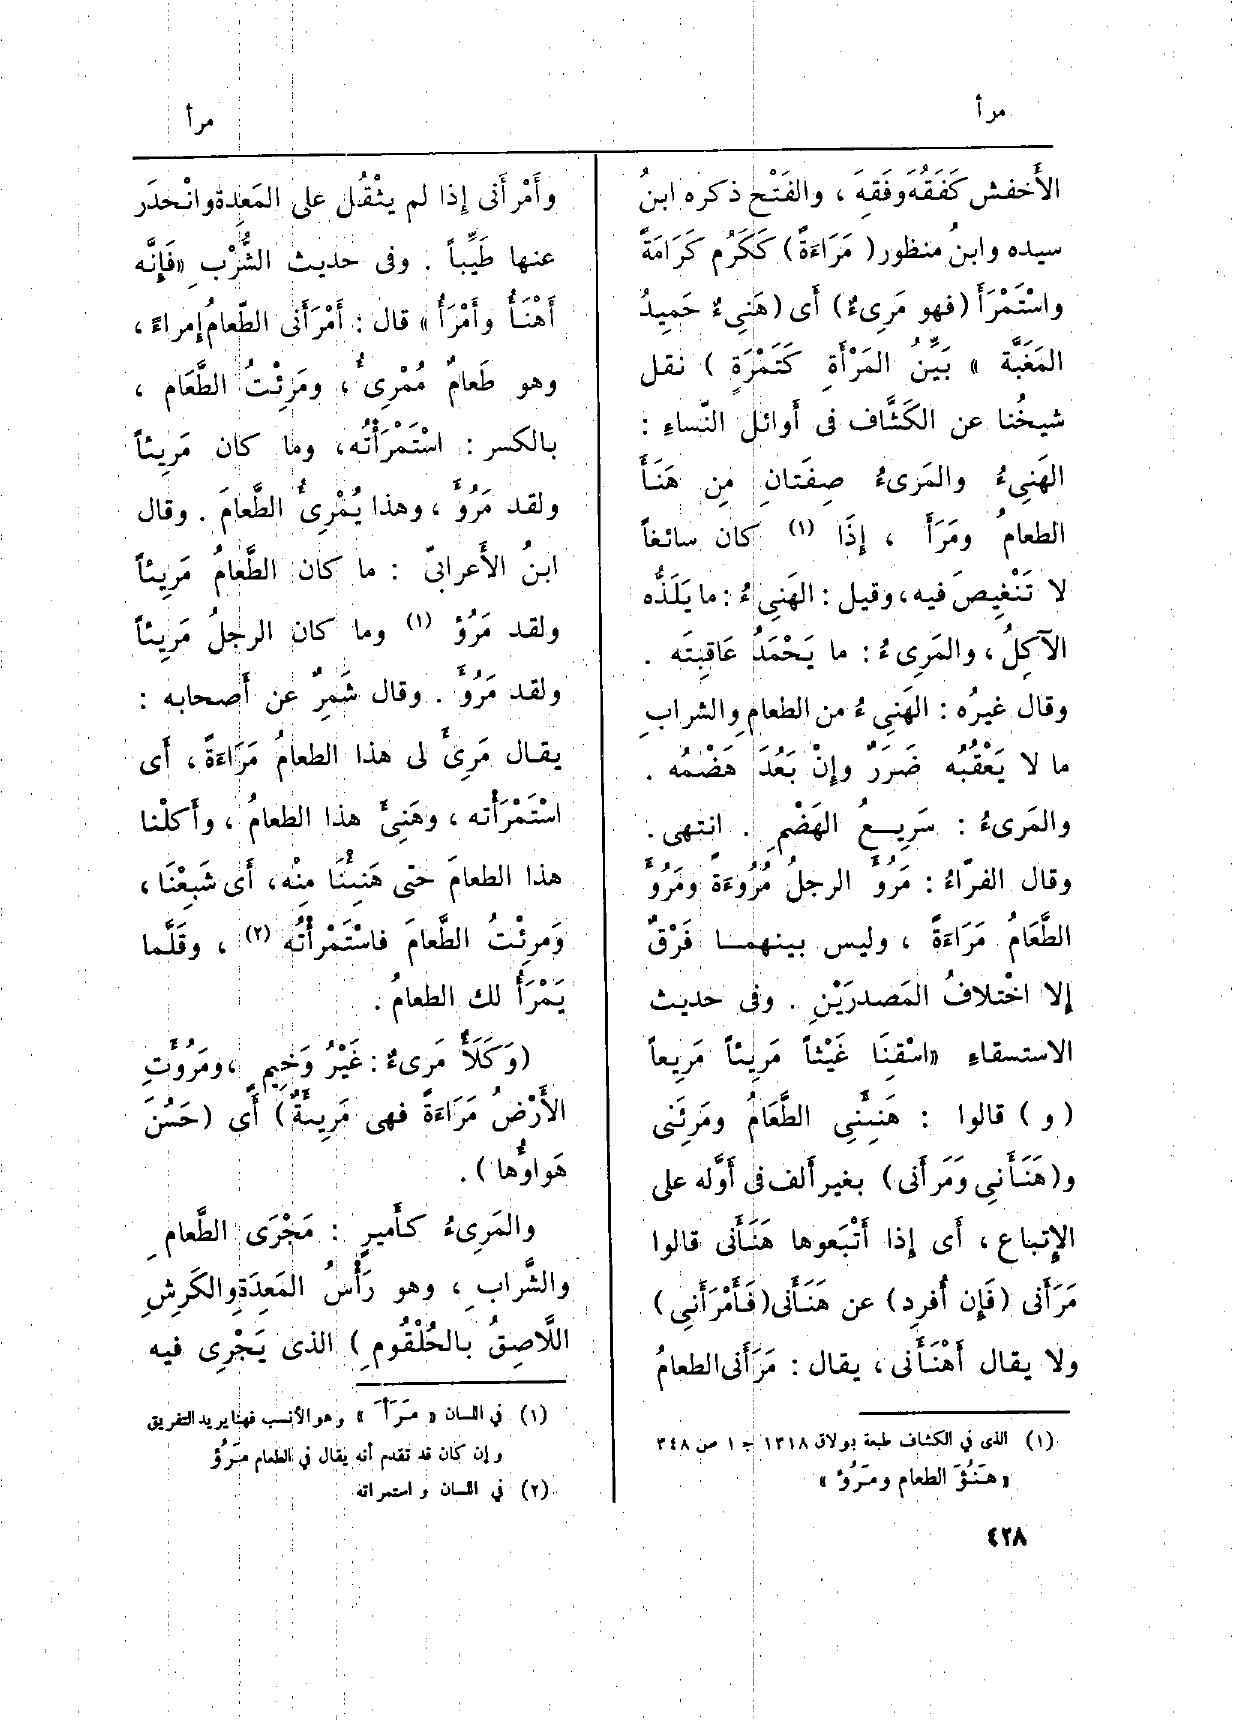 مرأ
مرأ
الأَخفش كَفَقُه وفَقِه ، والفَتْح ذكره ابنُ
سيده وابنُ منظور ( مَرَاءَةً ) كَكَرُم كَرَامَةً
واسْتَمْرَأَ (فهو مَرِىءٌ ) أَى (هَنِىءٌ حَمِيدُ
المَغَبَّة » بَيِّنُ المَرْأَةِ كَتَمْرَةٍ ) نقل
شيخُنا عن الكَشَّاف فى أَوائل النِّساءِ :
الهَنِىءُ والمَرِىءُ صِفَتَانِ مِن هَنَأَ
الطعامُ ومَرَأَ ، إِذَا (١) كان سائغاً
لا تَنْغِيصَ فيه ، وقيل : الهَنِىءُ : ما يَلَذُّه
الآكِلُ ، والمَرِىءُ : ما يَحْمَدُ عَاقِبتَه .
وقال غيرُه : الهَنِىءُ من الطعامِ والشرابِ
ما لا يَعْقُبُه ضَرَرٌ وإِنْ بَعُدَ هَضْمُه .
والمَرِىءُ : سَرِيعُ الهَضْمِ . انتهى .
وقال الفرّاءُ : مَرُؤَ الرجلُ مُرُوءَةً ومَرُؤَ
الطَّعَامُ مَرَاءَةً ، وليس بينهما فَرْقٌ
إِلا اخْتلافُ المَصدرَيْنِ . وفى حديث
الاستسقاءِ «اسْقِنَا غَيْثاً مَرِيئاً مَرِيعاً
( و ) قالوا : هَنِئَنِى الطَّعَامُ ومَرِئَنى
و(هَنَأَنِى وَمَرَأَنى) بغير أَلف فى أَوَّله على
الإِتباع ، أَى إِذا أَتْبَعوها هَنَأَنى قالوا
مَرَأَنى (فَإِن أُفرِد) عن هَنَأَنى (فَأَمْرَأَنِى)
ولا يقال أَهْنَأَنى ، يقال : مَرَأَنى الطعامُ
(١) الذى في الكشاف طبعة بولاق ١٣١٨ ج ١ ص ٣٤٨
« هَنُؤَ الطعام ومَرُؤَ »
وأَمْرَأَنى إِذا لم يثْقُل على المَعِدة وانْحدَر
عنها طَيِّباً . وفى حديث الشُّرْبِ «فَإِنَّه
أَهْنَأُ وأَمْرَأُ» قال : أَمْرَأَنى الطّعامُ إِمراءً ،
وهو طَعامٌ مُمْرِئٌ ، ومَرِئْتُ الطَّعَام ،
بالكسر : اسْتَمْرَأْتُه ، وما كان مَرِيئاً
ولقد مَرُؤَ ، وهذا يُمْرِئُ الطَّعامَ . وقال
ابنُ الأَعرابىّ : ما كان الطَّعامُ مَرِيئاً
ولقد مَرُؤ (١) وما كان الرجلُ مَرِيئاً
ولقد مَرُؤَ . وقال شَمِرٌ عن أَصحابه :
يقال مَرِئَ لى هذا الطعامُ مَرَاءَةً ، أَى
اسْتَمْرَأْته ، وهَنِئَ هذا الطعامُ ، وأَكلْنا
هذا الطعامَ حتى هَنِئْنَا مِنْه ، أَى شَبِعْنَا ،
وَمرِئْتُ الطَّعامَ فاسْتَمْرأْتُه (٢) ، وقَلَّما
يَمْرَأُ لك الطعامُ .
(وَكَلَأٌ مَرِىءٌ : غَيْرُ وَخِيمٍ ، ومَرُؤَتِ
الأَرْضُ مَرَاءَةً فهى مَرِيئَةٌ ) أَى (حَسُنَ
هَواؤُها ) .
والمَرِىءُ كأَميرٍ : مَجْرَى الطَّعامِ
والشَّرابِ ، وهو رَأْسُ المَعِدَةِ والكَرِشِ
اللَّاصِقُ بالحُلْقُومِ ) الذى يَجْرِى فيه
(١) في اللسان « مَرَأَ » وهو الأنسب فهنا يريد التفريق
وإن كان قد تقدم أنه يقال في الطعام مَرُؤ
(٢) في اللسان واستمرأته
٤٢٨